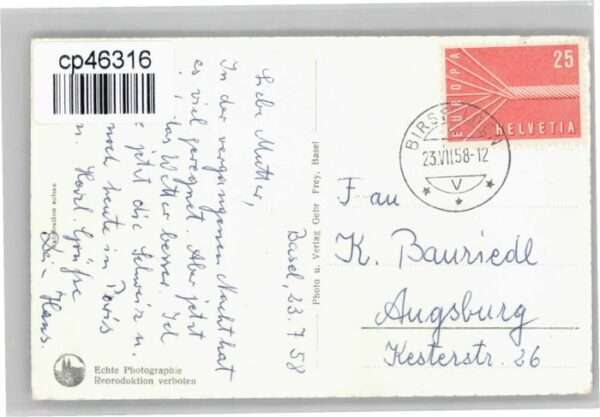 cp46316
EUROPA
25
HELVETIA
BIRS
23.VII.58-12
V
Basel, 23.7.58
Liebe Mutter,
In der vergangenen Nacht hat
es viel geregnet. Aber jetzt
das Wetter besser. Ich
jetzt die Schweiz u.
noch heute in Paris
Herzl. Grüße
Dein Hans.
Photo u. Verlag Gebr Frey, Basel
Echte Photographie
Reproduktion verboten
Frau
K. Bauriedl
Augsburg
Kesterstr. 26